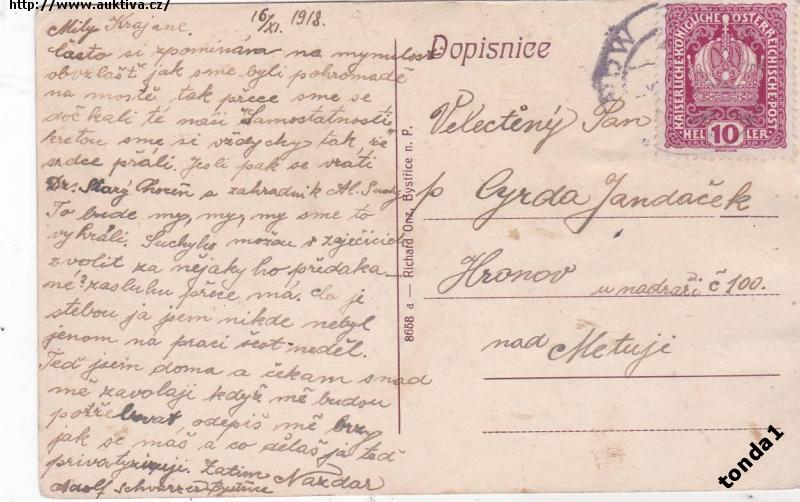 http://www.auktiva.cz/
16/XI. 1918.
Milý Krajane.
často si zpomínám na
obvzlášť jak sme byli pohromadě
na mostě, tak přece sme se
dočkali té naší Samostatnosti
kterou sme si vždycky tak ze
srdce přáli. Jesli pak se vrátí
Dr. Starý a zahradník Al.
To bude my, my, my sme to
vyhráli. Suchýho možou s
zvolit za nějakýho předáka
né? zásluhu přece má. Co je
stebou já jsem nikde nebyl
jenom na práci šest neděl.
Teď jsem doma a čekám snad
mě zavolají když mě budou
potřebovat, odepiš mě brzy
jak se máš a co děláš já teď
Zatím Nazdar
Adolf Schwarzer Bystřice
Dopisnice
KAISERLICHE KÖNIGLICHE ÖSTERREICHISCHE POST
HEL 10 LER
Velectěný Pan
p Cyrda Jandáček
Hronov
u nádraží č 100.
nad Metují
8658 d — Richard Onz, Bystřice n. P.
tonda1